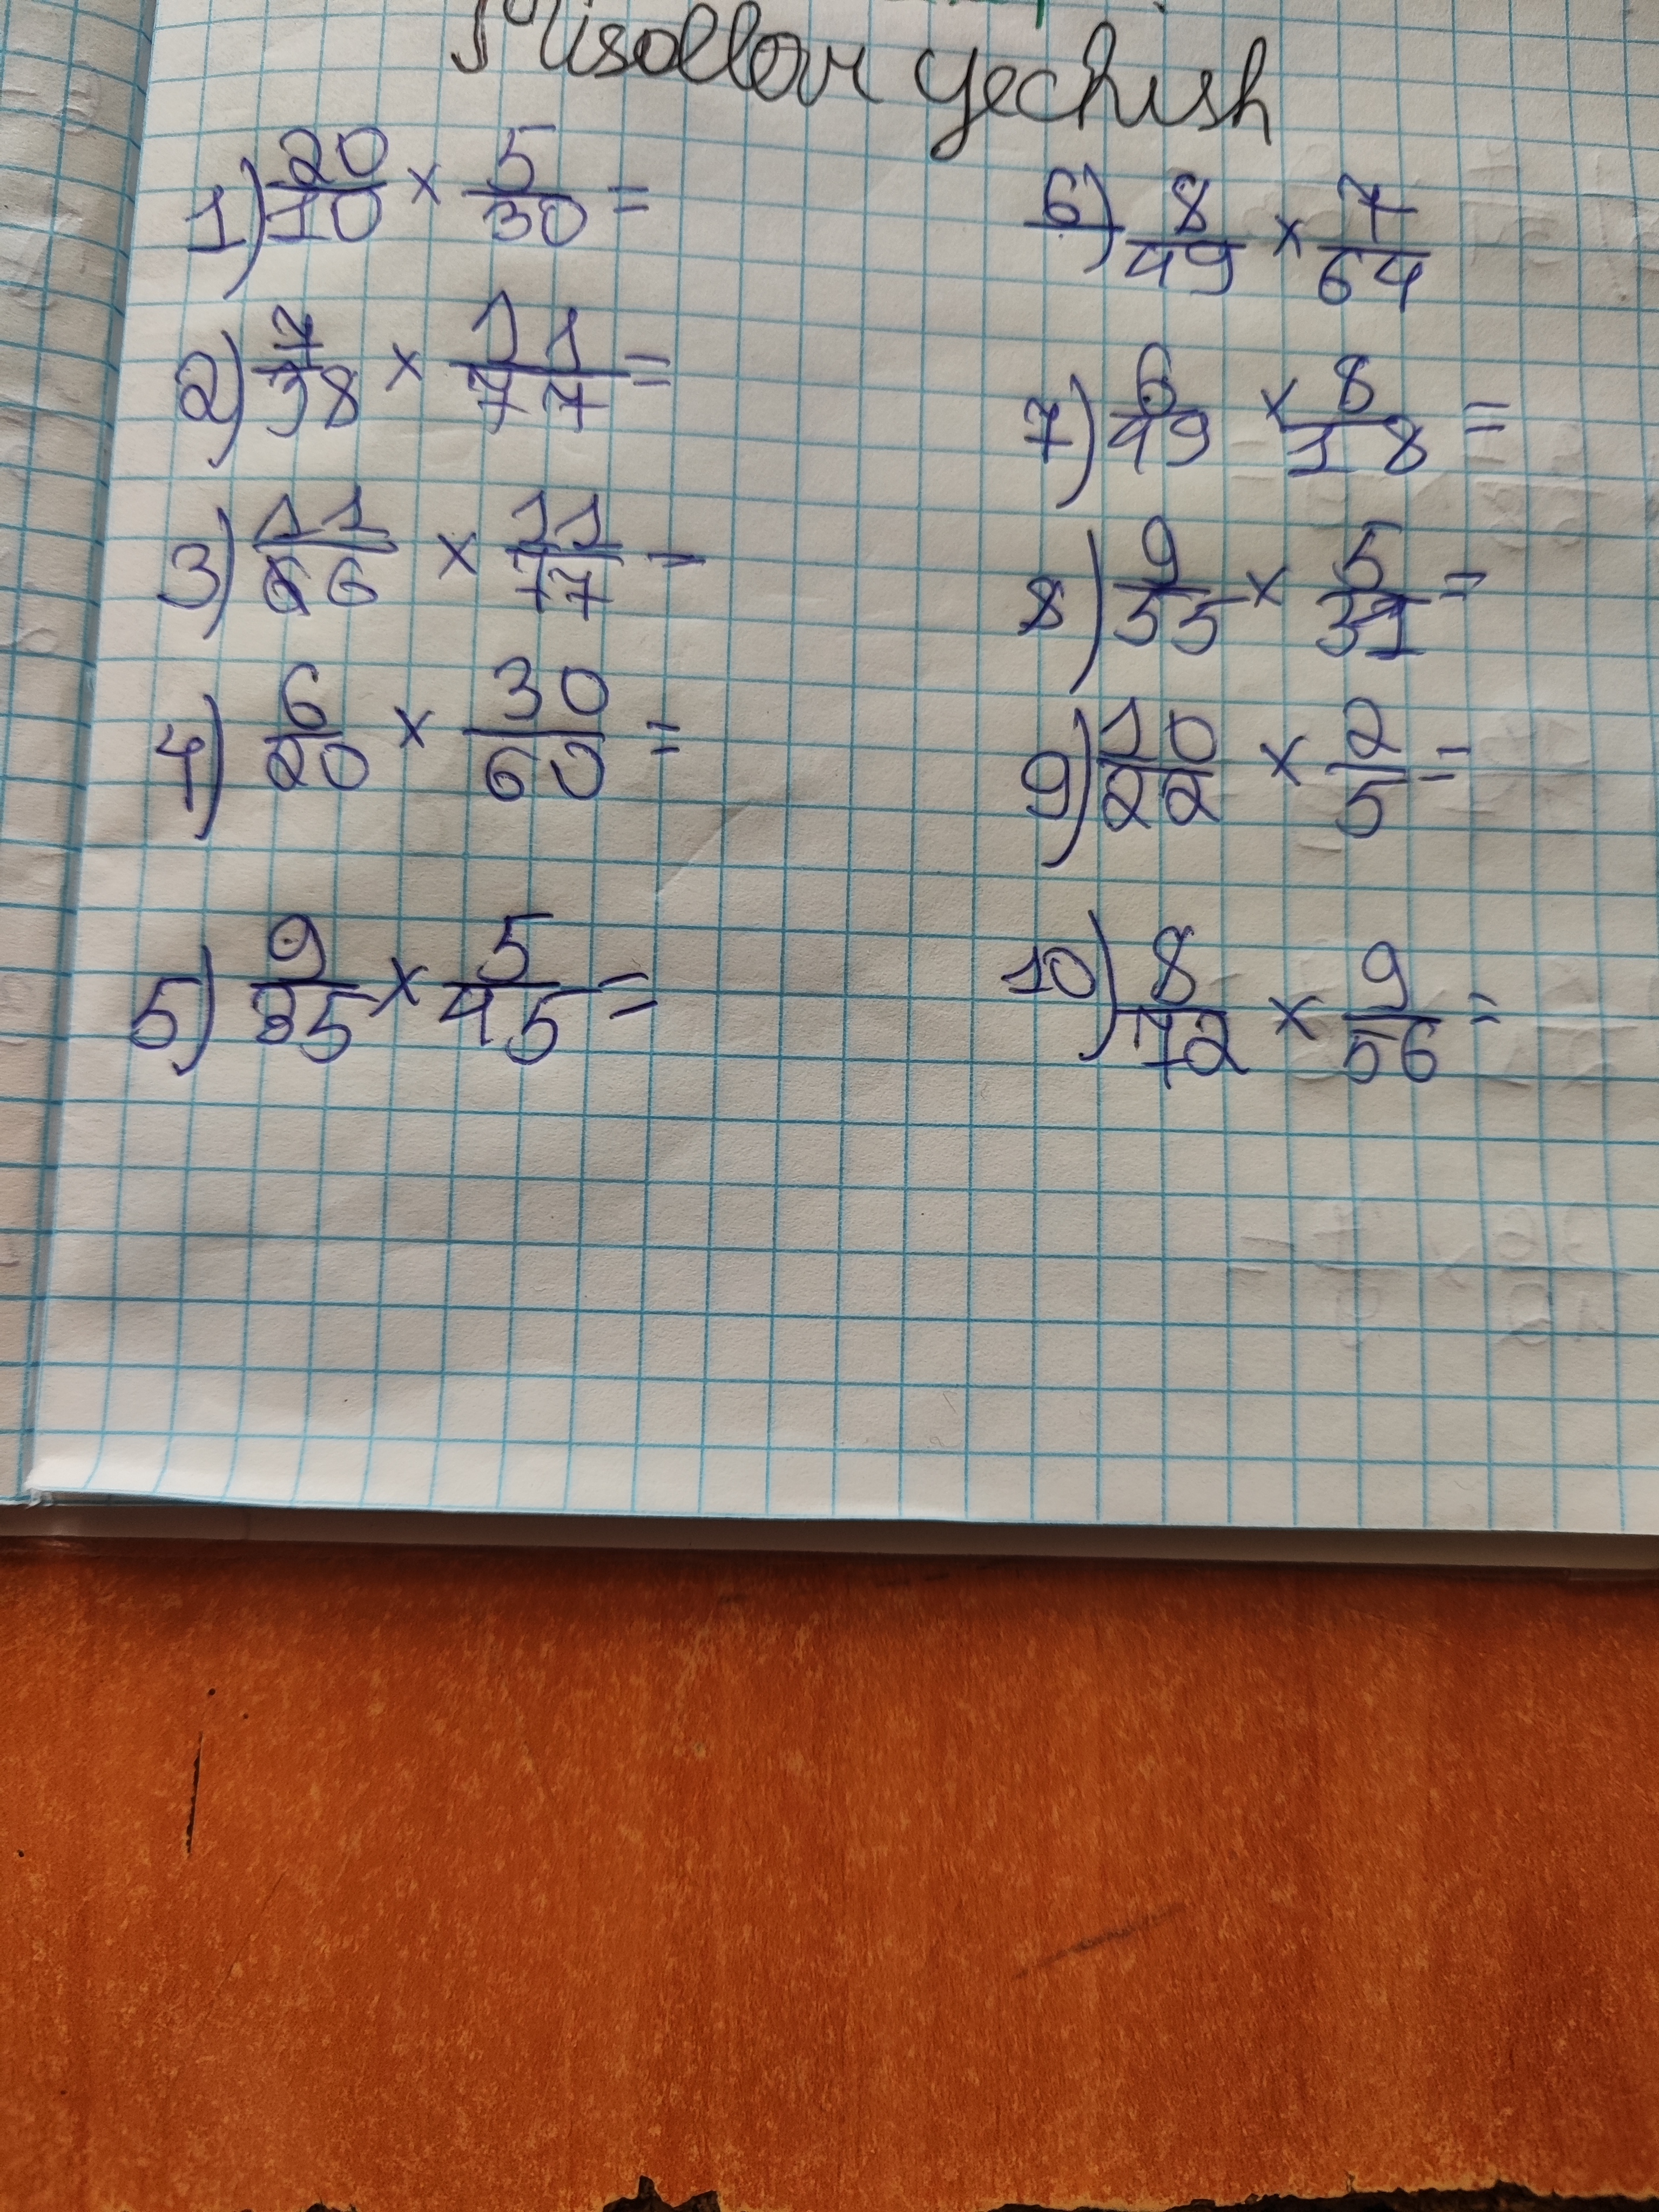 Misollar yechish
1) 20/10 × 5/30 =
2) 7/38 × 11/77 =
3) 11/66 × 11/77 -
4) 6/20 × 30/60 =
5) 9/35 × 5/45 =
6) 8/49 × 7/64
7) 6/49 × 8/18 =
8) 9/55 × 5/31 =
9) 10/22 × 2/5 =
10) 8/72 × 9/56 =